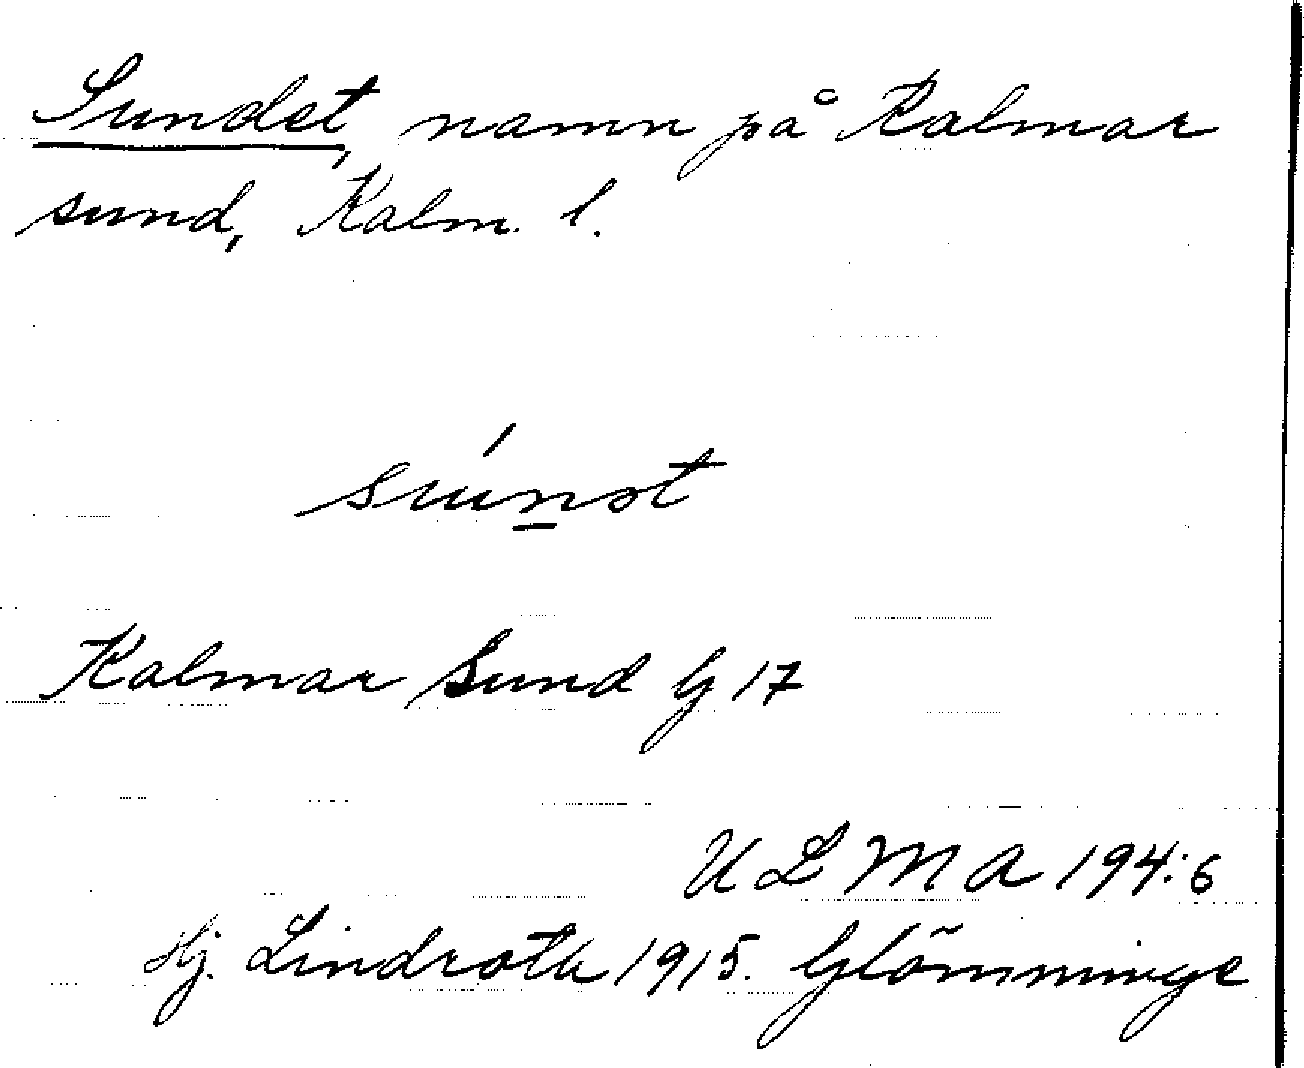 Sundet, namn på Kalmar
sund, Kalm. l.
sún̲ət
Kalmar Sund G 17
ULMA 194:6
Hj. Lindroth 1915. Glömminge